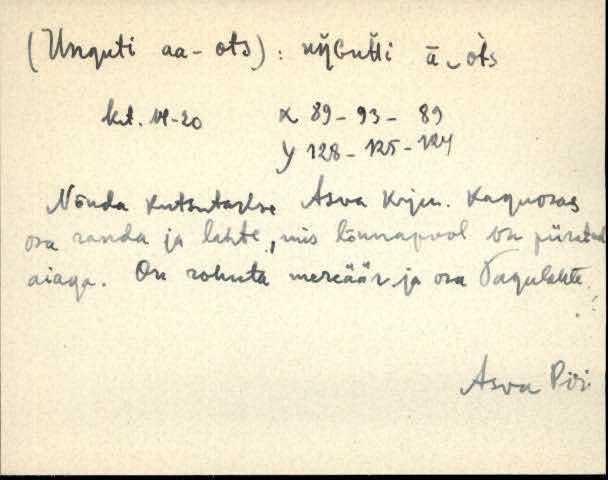 (Unguti aa-ots): uŋgutti ā‿òts
krt. VI-20 X 89-93-89
Y 128-125-124
Nõnda kutsutakse Asva Kõrju. kaguosas
osa randa ja lahte, mis lõunapool on piiratud
aiaga. On rohuta mereäär ja osa Vagulahte.
Asva